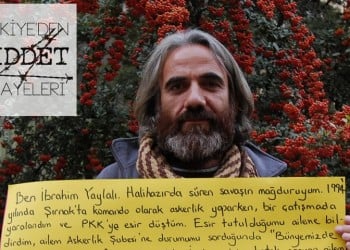 KİYEDEN
İDDET
AYELERİ
Ben İbrahim Yaylalı. Halihazırda süren savaşın mağduruyum. 1994
yılında Şırnak'ta komando olarak askerlik yaparken, bir çatışmada
yaralandım ve PKK'ye esir düştüm. Esir tutulduğumu aileme bil-
dirdim, ailem Askerlik Şubesi'ne durumumu sorduğunda "Bünyemizde